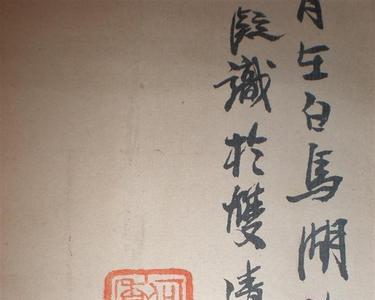 月在白馬湖
識於雙清